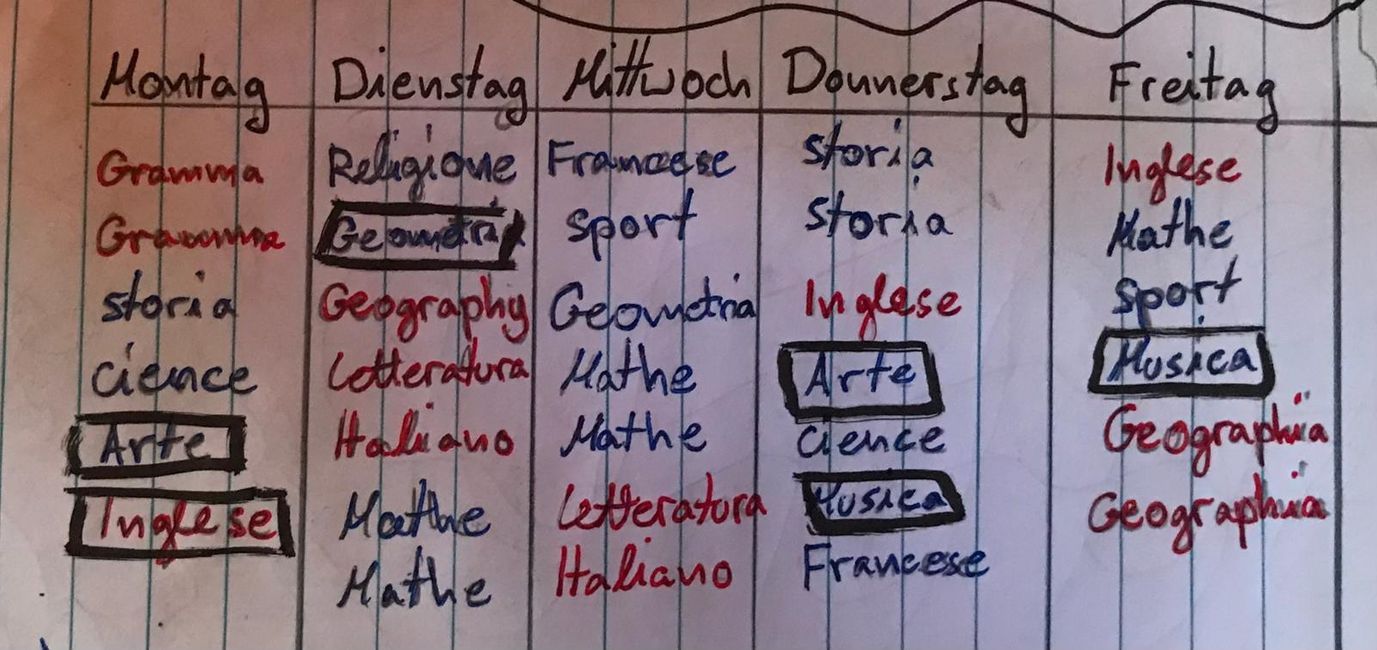 Montag Dienstag Mittwoch Donnerstag Freitag
Gramma Religione Francese storia Inglese
Gramma Geometri sport storia Mathe
storia Geography Geometria Inglese sport
cience Letteratura Mathe Arte Musica
Arte Italiano Mathe cience Geographia
Inglese Mathe Letteratura Musica Geographia
Mathe Italiano Francese